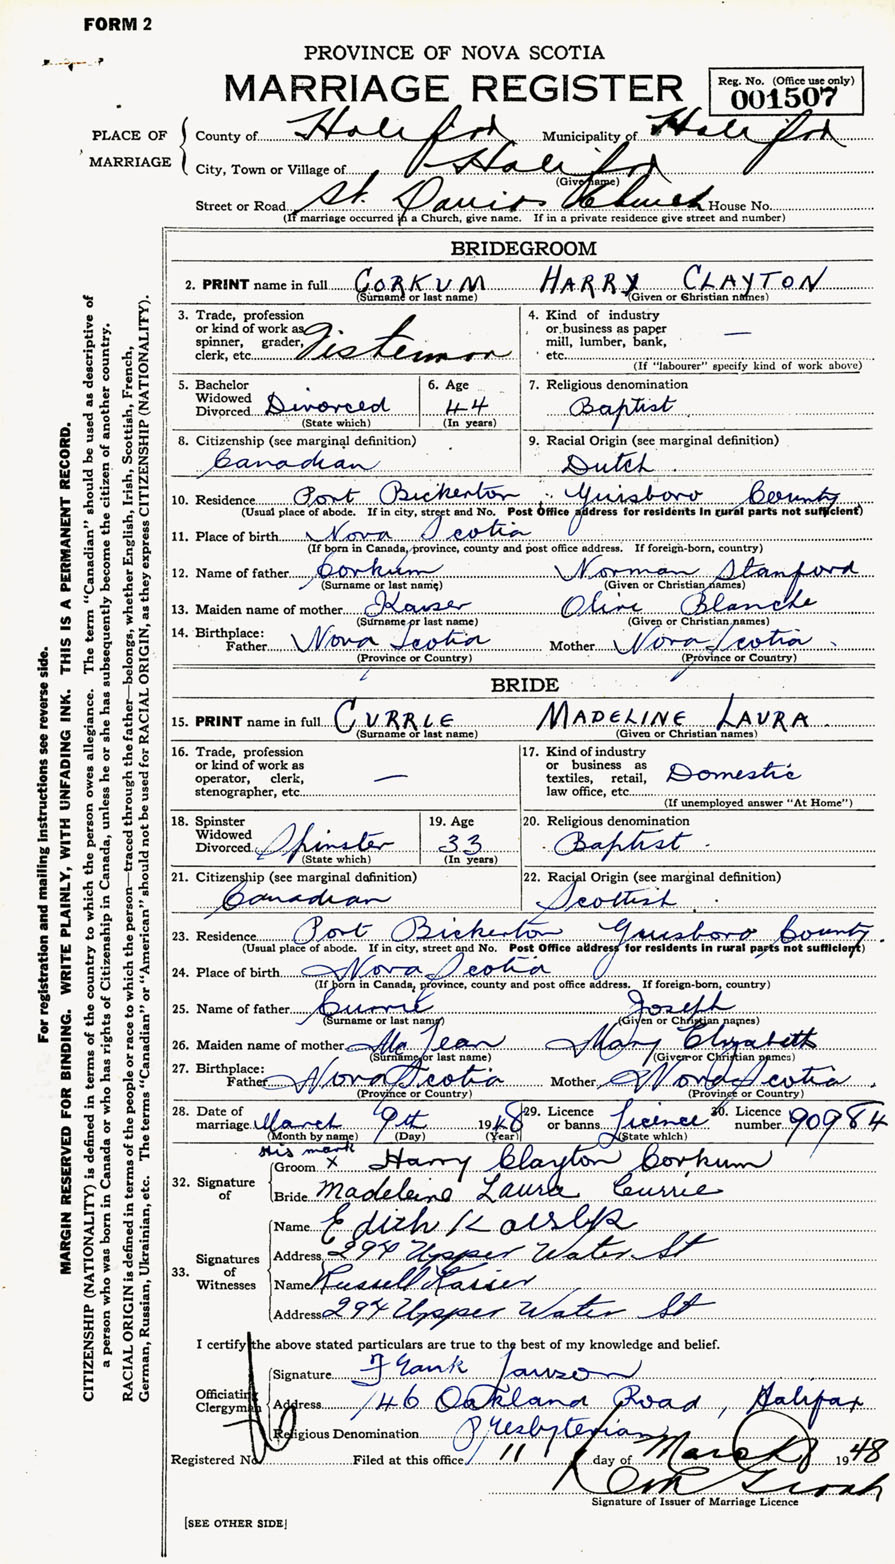 FORM 2
PROVINCE OF NOVA SCOTIA
MARRIAGE REGISTER
Reg. No. (Office use only)
001507
PLACE OF MARRIAGE
County of Halifax Municipality of Halifax
City, Town or Village of Halifax
(Give name)
Street or Road St. Davids Church House No.
(If marriage occurred in a Church, give name. If in a private residence give street and number)
BRIDEGROOM
2. PRINT name in full CORKUM HARRY CLAYTON
(Surname or last name) (Given or Christian names)
3. Trade, profession or kind of work as spinner, grader, clerk, etc. Fisherman
4. Kind of industry or business as paper mill, lumber, bank, etc. —
(If "labourer" specify kind of work above)
5. Bachelor Widowed Divorced Divorced
(State which)
6. Age 44
(In years)
7. Religious denomination
Baptist
8. Citizenship (see marginal definition)
Canadian
9. Racial Origin (see marginal definition)
Dutch
10. Residence Port Bickerton Guisboro County
(Usual place of abode. If in city, street and No. Post Office address for residents in rural parts not sufficient)
11. Place of birth Nova Scotia
(If born in Canada, province, county and post office address. If foreign-born, country)
12. Name of father Corkum Norman Stanford
(Surname or last name) (Given or Christian names)
13. Maiden name of mother Kaiser Olive Blanche
(Surname or last name) (Given or Christian names)
14. Birthplace:
Father Nova Scotia Mother Nova Scotia
(Province or Country) (Province or Country)
BRIDE
15. PRINT name in full CURRIE MADELINE LAURA
(Surname or last name) (Given or Christian names)
16. Trade, profession or kind of work as operator, clerk, stenographer, etc. —
17. Kind of industry or business as textiles, retail, law office, etc. Domestic
(If unemployed answer "At Home")
18. Spinster Widowed Divorced Spinster
(State which)
19. Age 33
(In years)
20. Religious denomination
Baptist
21. Citizenship (see marginal definition)
Canadian
22. Racial Origin (see marginal definition)
Scottish
23. Residence Port Bickerton Guisboro County
(Usual place of abode. If in city, street and No. Post Office address for residents in rural parts not sufficient)
24. Place of birth Nova Scotia
(If born in Canada, province, county and post office address. If foreign-born, country)
25. Name of father Currie Joseph
(Surname or last name) (Given or Christian names)
26. Maiden name of mother McLean Mary Elizabeth
(Surname or last name) (Given or Christian names)
27. Birthplace:
Father Nova Scotia Mother Nova Scotia
(Province or Country) (Province or Country)
28. Date of marriage March 9th 1948
(Month by name) (Day) (Year)
29. Licence or banns Licence
(State which)
30. Licence number 90984
His mark
32. Signature of
Groom x Harry Clayton Corkum
Bride Madeleine Laura Currie
33. Signatures of Witnesses
Name Edith
Address 294 Upper Water St
Name Russell Kaiser
Address 294 Upper Water St
I certify the above stated particulars are true to the best of my knowledge and belief.
Officiating Clergyman
Signature Frank Lawson
Address 146 Oakland Road, Halifax
Religious Denomination Presbyterian
Registered No. Filed at this office 11 day of March 1948
Signature of Issuer of Marriage Licence
[SEE OTHER SIDE]
For registration and mailing instructions see reverse side.
MARGIN RESERVED FOR BINDING. WRITE PLAINLY, WITH UNFADING INK. THIS IS A PERMANENT RECORD.
CITIZENSHIP (NATIONALITY) is defined in terms of the country to which the person owes allegiance. The term "Canadian" should be used as descriptive of
a person who was born in Canada or who has rights of Citizenship in Canada, unless he or she has subsequently become the citizen of another country.
RACIAL ORIGIN is defined in terms of the people or race to which the person—traced through the father—belongs, whether English, Irish, Scottish, French,
German, Russian, Ukrainian, etc. The terms "Canadian" or "American" should not be used for RACIAL ORIGIN, as they express CITIZENSHIP (NATIONALITY).